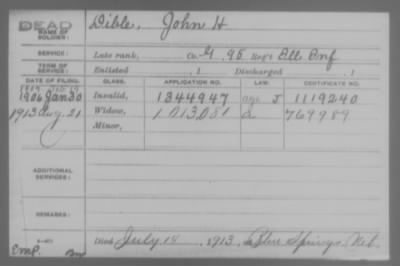 DEAD
NAME OF SOLDIER: Dible, John H
SERVICE: Late rank, Co. G 95 Reg't Ill Inf
TERM OF SERVICE: Enlisted , 1 Discharged , 1
DATE OF FILING. CLASS. APPLICATION NO. LAW. CERTIFICATE NO.
1906 Jan 30 Invalid, 1344947 age J 1119240
1913 Aug. 21 Widow, 1013081 769989
Minor,
ADDITIONAL SERVICES:
REMARKS:
Died July 14, 1913, Blue Springs, Neb.